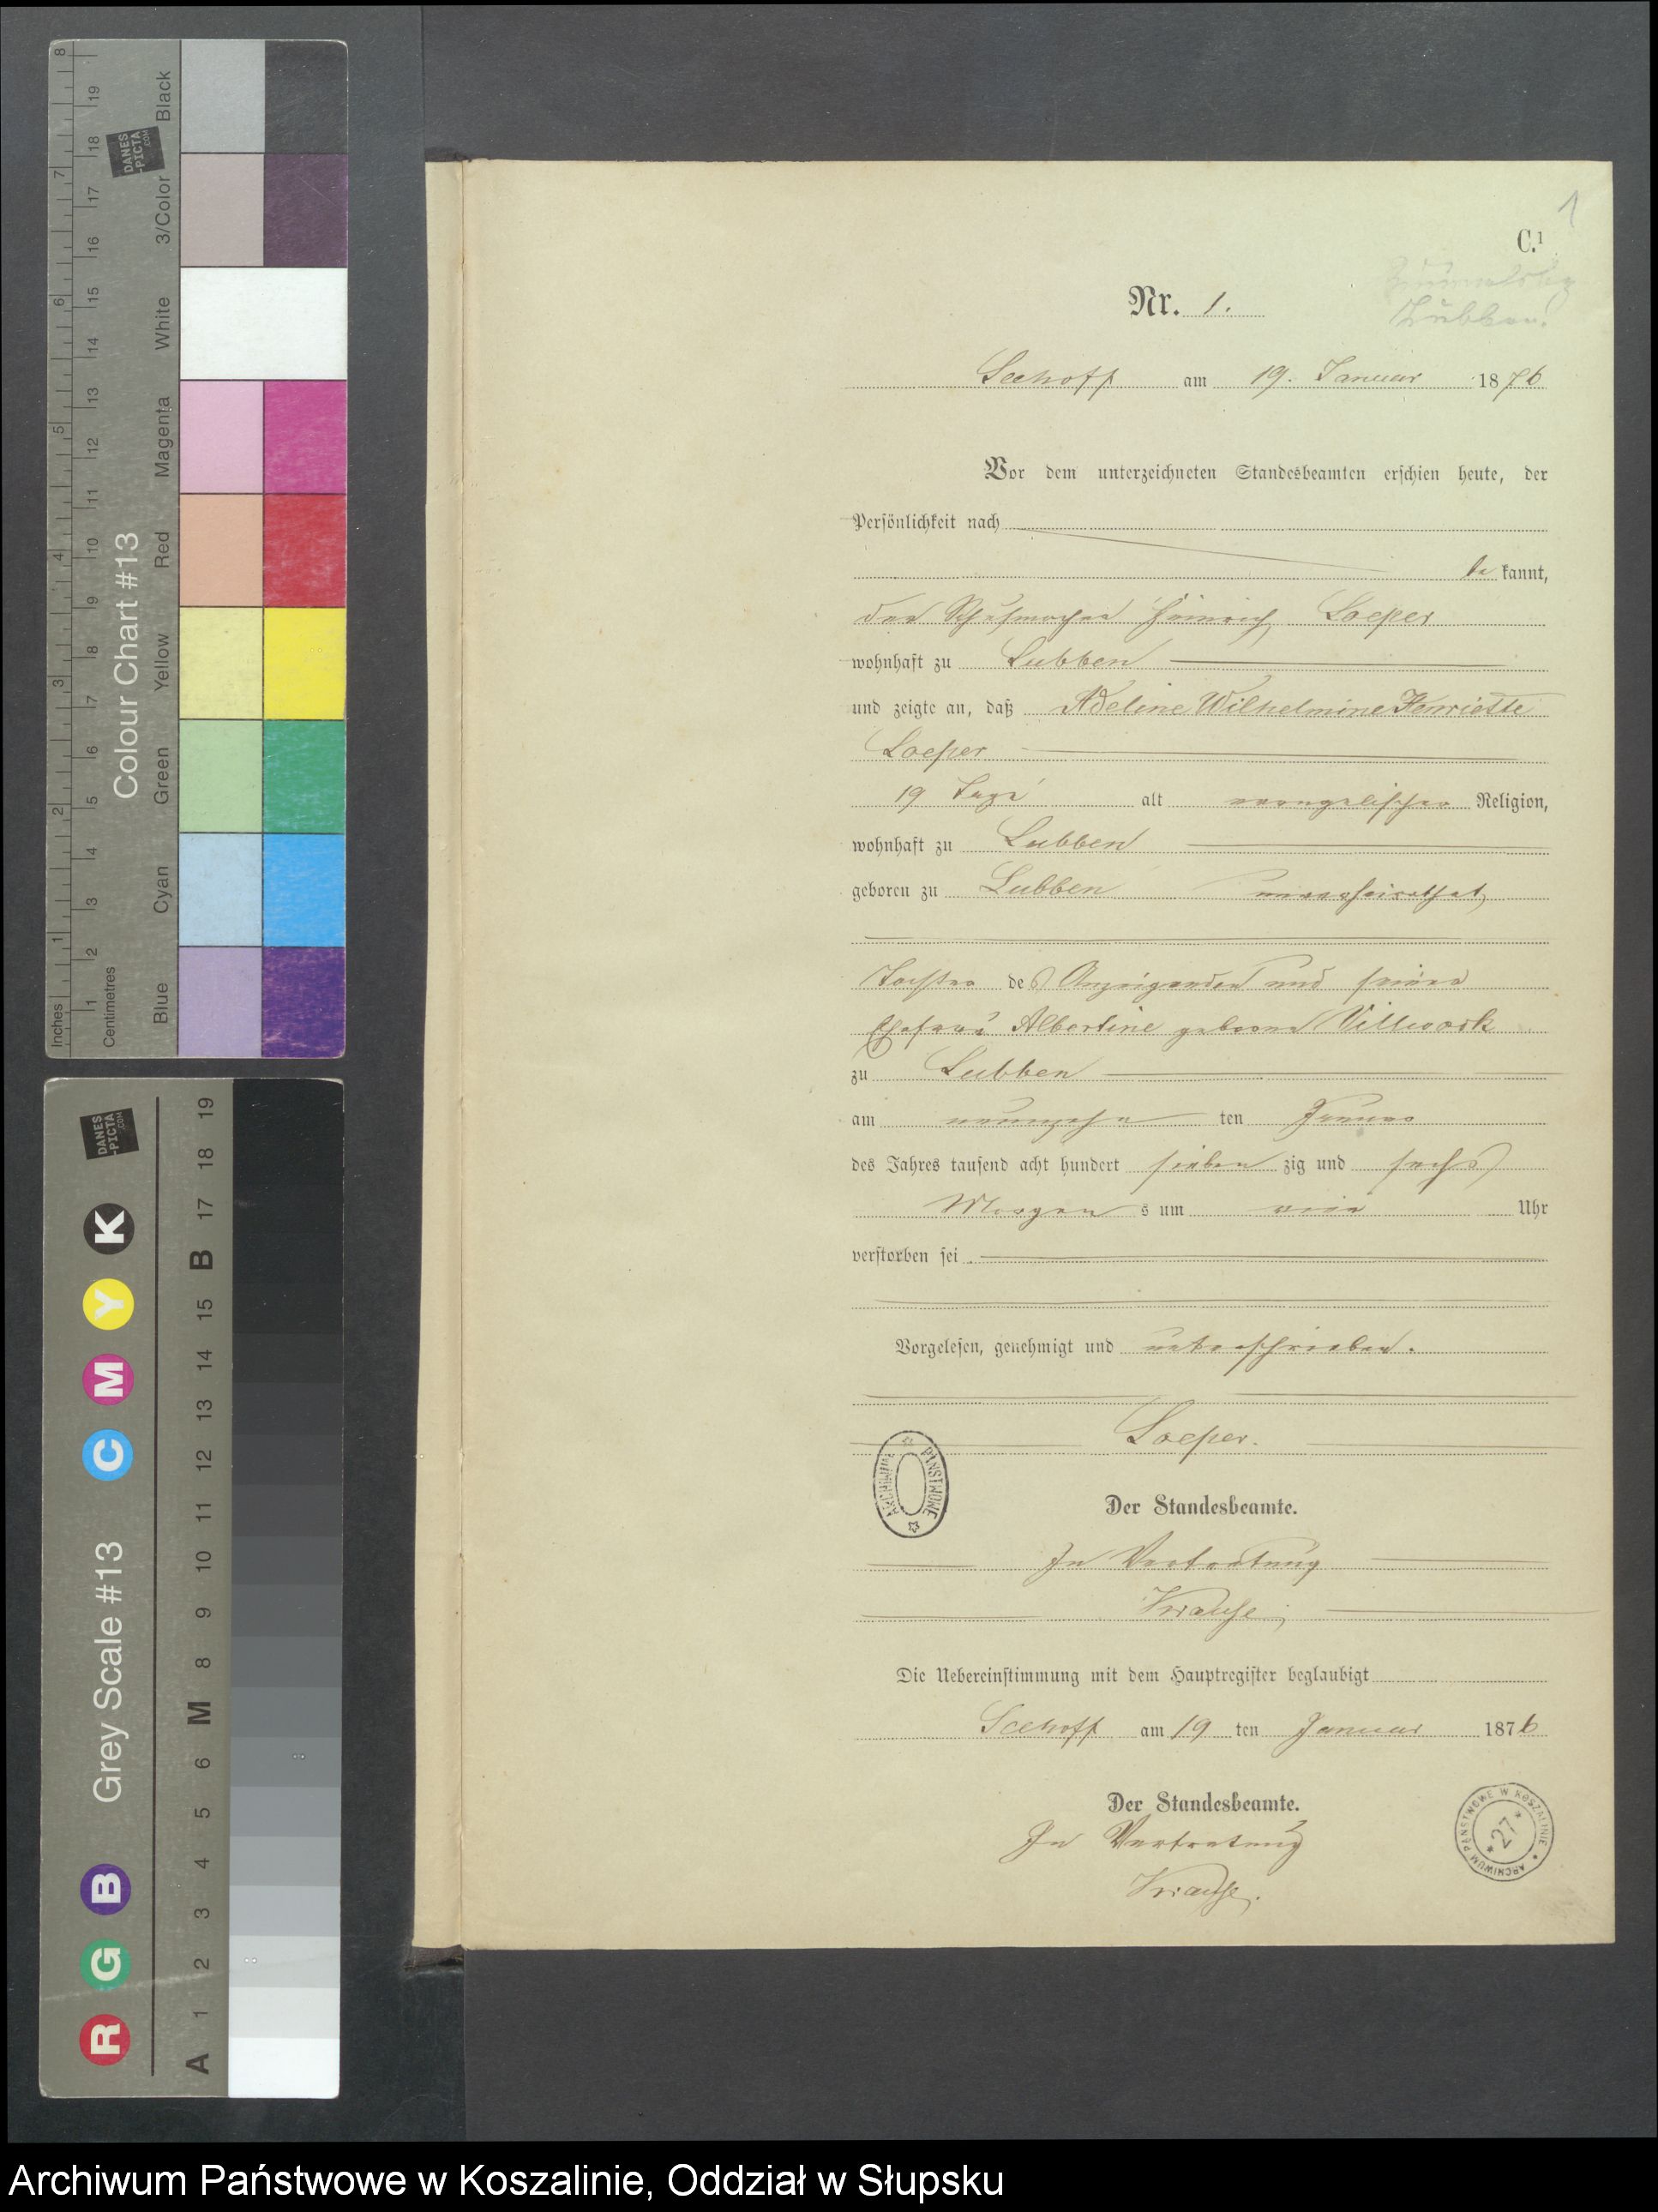 8
7
6
5
4
3
2
1
Inches
19
18
17
16
15
14
13
12
11
10
9
8
7
6
5
4
3
2
1
Centimetres
DANES
-PICTA
.COM
Colour Chart #13
Black
3/Color
White
Magenta
Red
Yellow
Green
Cyan
Blue
DANES
-PICTA
.COM
Grey Scale #13
K
Y
M
C
B
G
R
19
18
17
B
15
14
13
12
11
10
9
8
M
6
5
4
3
2
1
A
1
C.1
Lübben
Nr. 1.
Seehoff am 19. Januar 1876
Vor dem unterzeichneten Standesbeamten erschien heute, der
Persönlichkeit nach
be kannt,
der Schuhmacher Heinrich Loeper
wohnhaft zu Lubben
und zeigte an, daß Adeline Wilhelmine Henriette
Loeper
19 Tage alt evangelischer Religion,
wohnhaft zu Lubben
geboren zu Lubben unverheirathet,
Tochter des Anzeigenden und seiner
Ehefrau Albertine geborne Villwock
zu Lubben
am neunzehn ten Januar
des Jahres tausend acht hundert sieben zig und sechs
Morgen s um vier Uhr
verstorben sei
Vorgelesen, genehmigt und unterschrieben.
Loeper.
ARCHIWUM PAŃSTWOWE
Der Standesbeamte.
In Vertretung
Krause
Die Uebereinstimmung mit dem Hauptregister beglaubigt
Seehoff am 19 ten Januar 1876
Der Standesbeamte.
In Vertretung
Krause.
ARCHIWUM PAŃSTWOWE W KOSZALINIE
*27*
Archiwum Państwowe w Koszalinie, Oddział w Słupsku